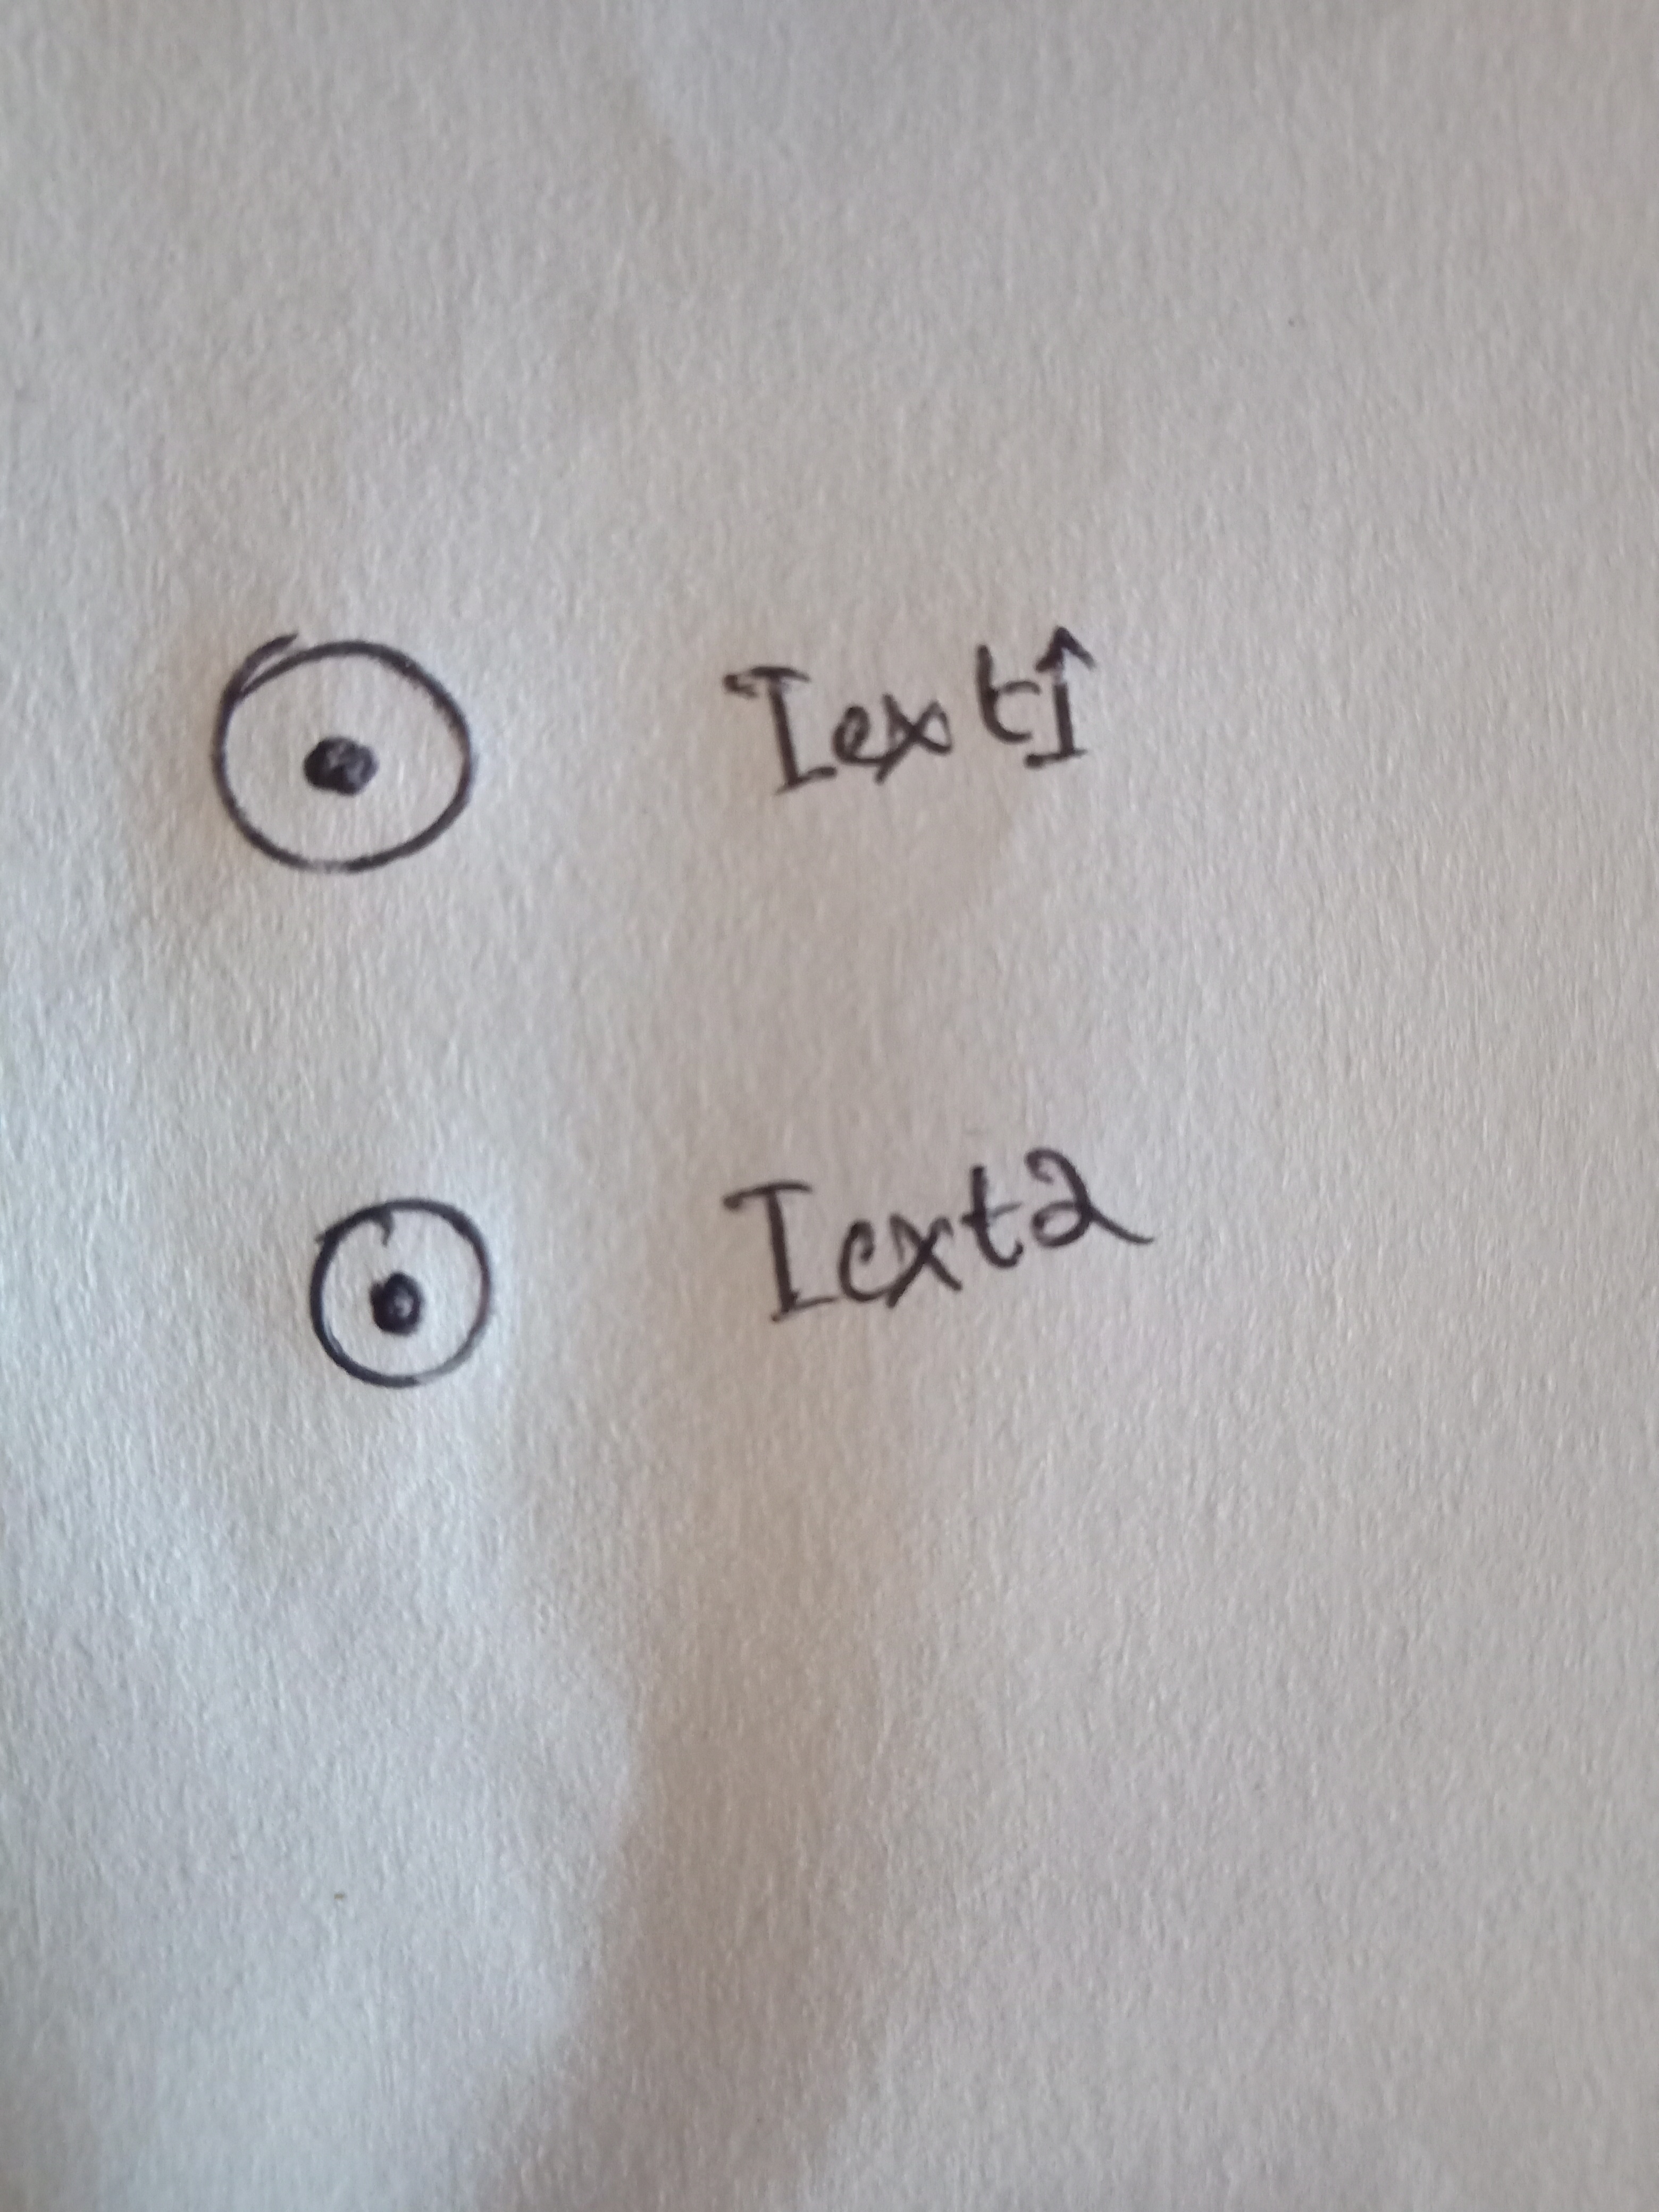 Text1
Text2